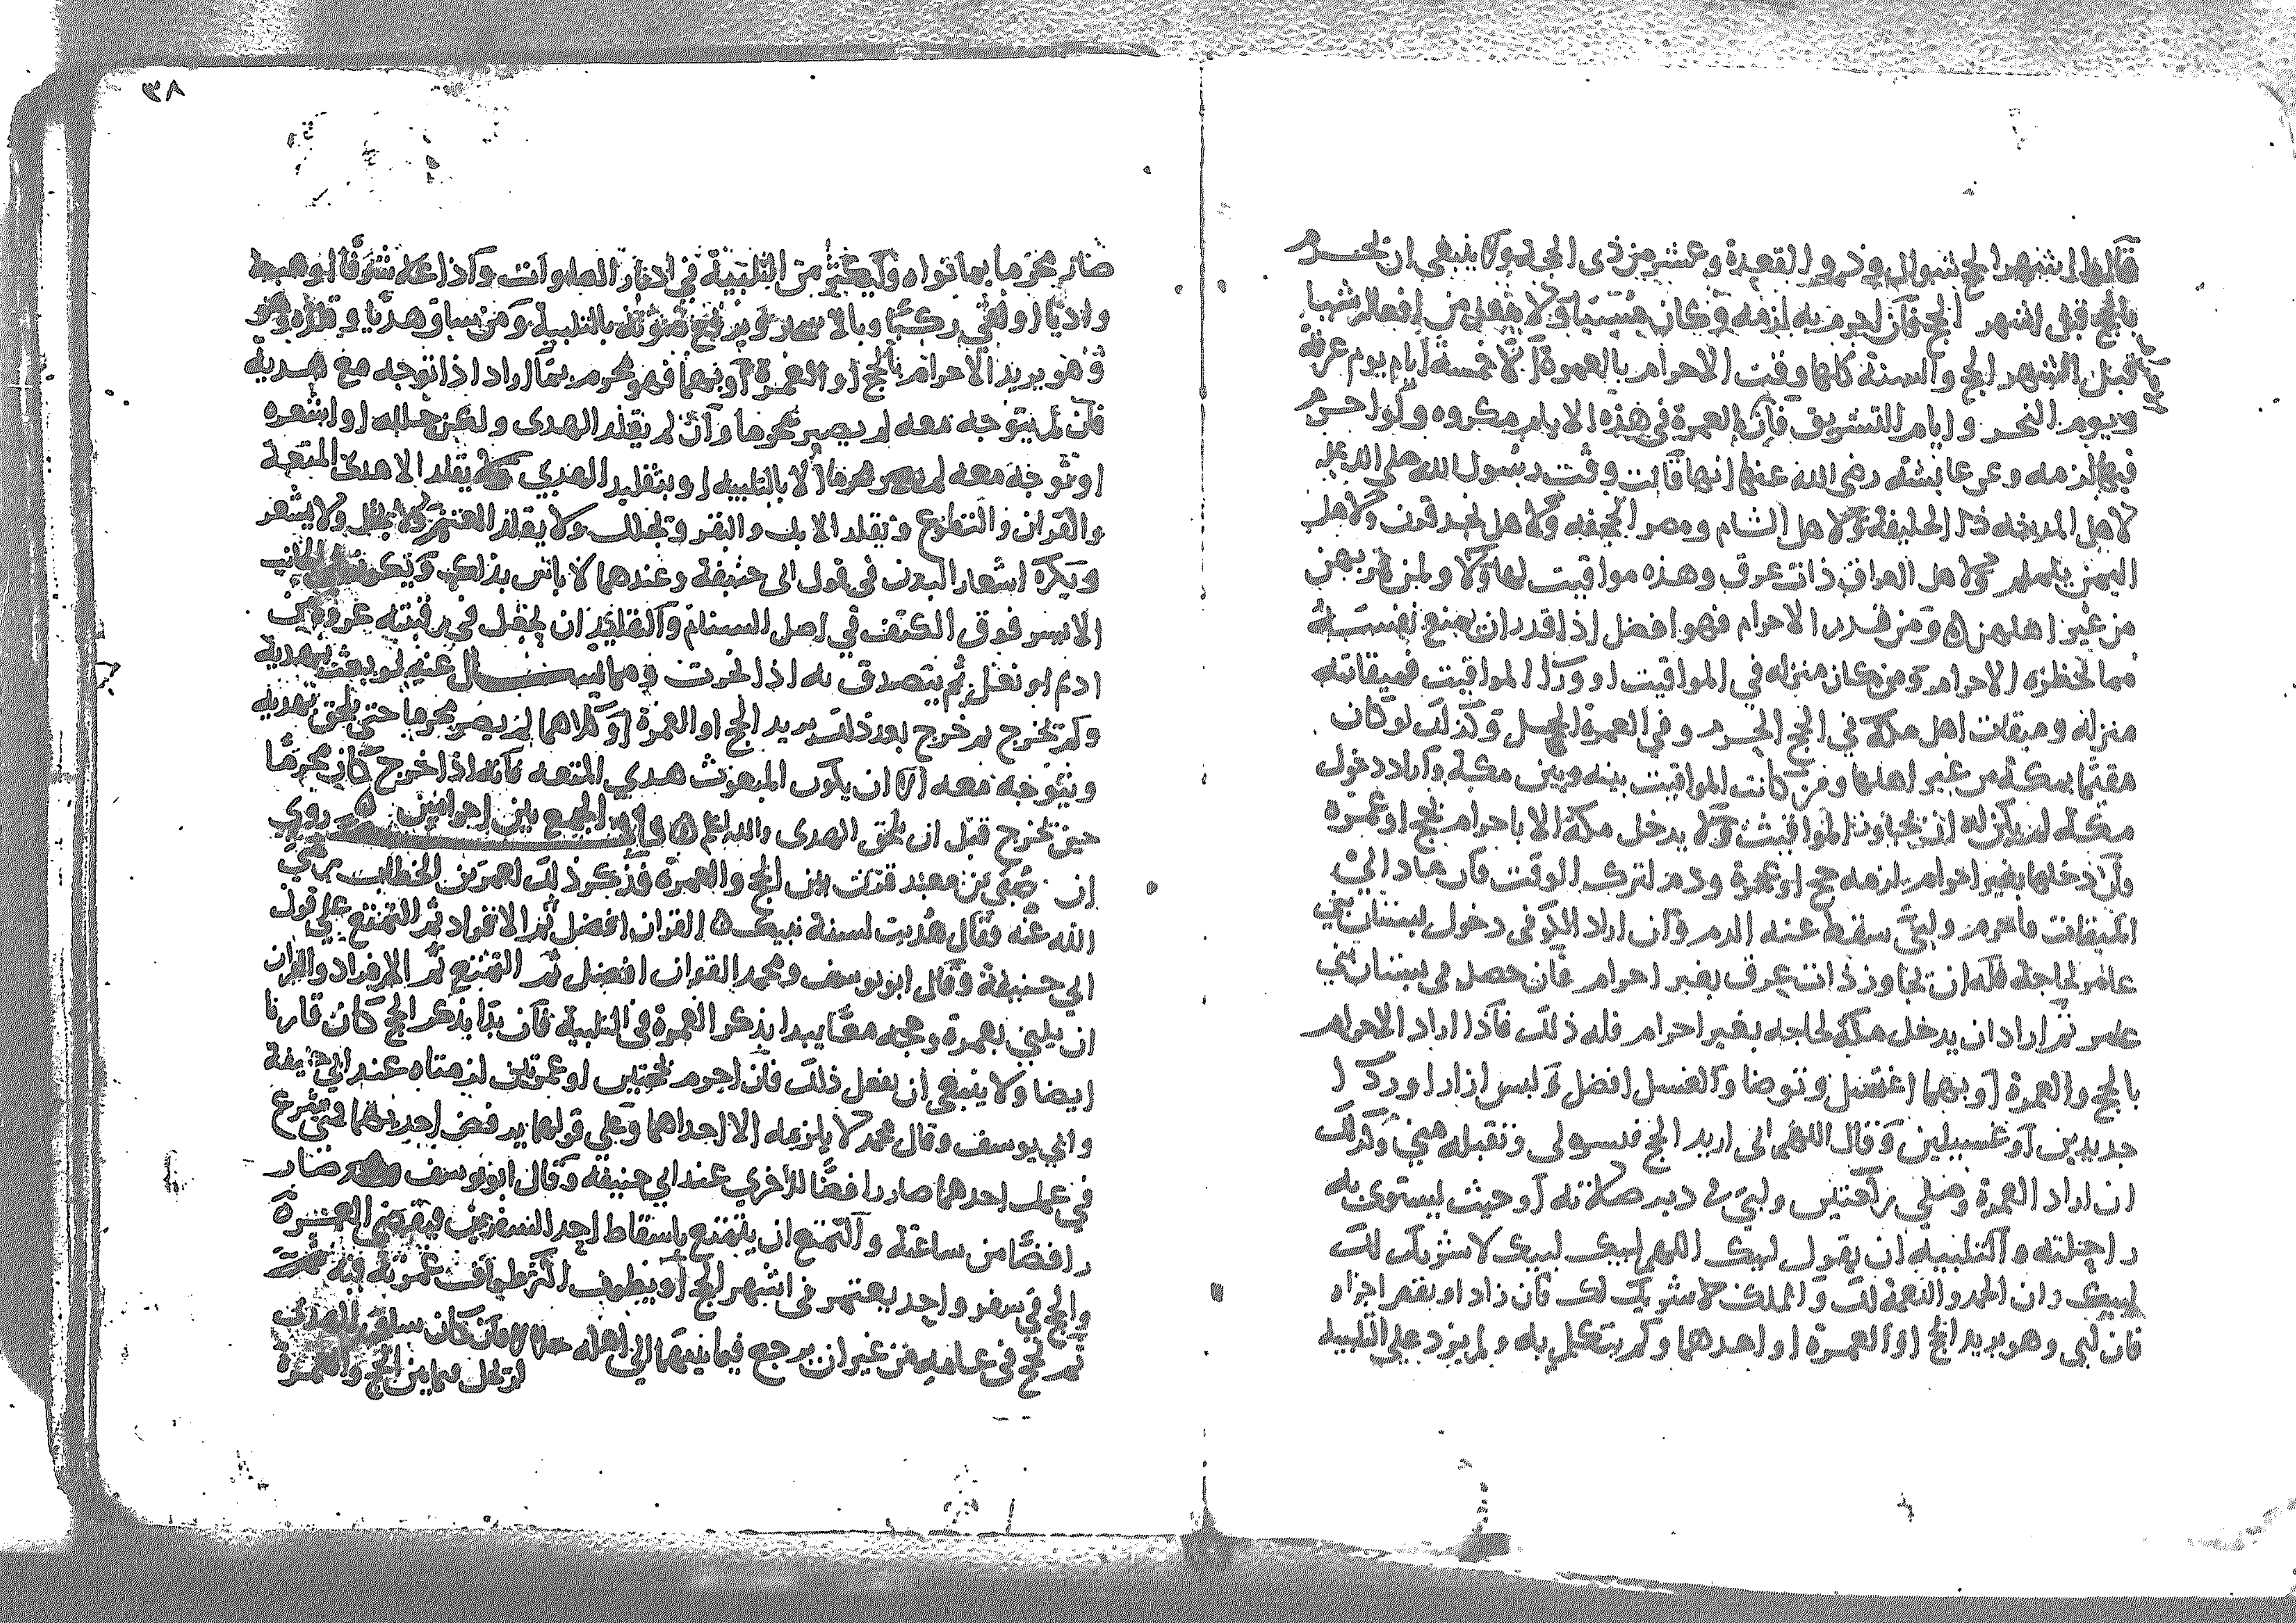 قالوا اشهر الحج شوال وذو القعدة وعشر من ذى الحجة ولا ينبغى ان يحرم
بالحج قبل اشهر الحج فان احرم به لزمه وكان مسيئا ولا يفعل من افعاله شيا
قبل اشهر الحج والسنة كلها وقت الاحرام بالعمرة الا خمسة ايام يوم عرفة
ويوم النحر وايام التشريق فان العمرة في هذه الايام مكروه ولو احرم
فيها لزمه وعن عايشه رضى الله عنها انها قالت وقت رسول الله صلى الله عليه
لاهل المدينه ذا الحليفة ولاهل الشام ومصر الجحفه ولاهل نجد قرن ولاهل
اليمن يلملم ولاهل العراق ذات عرق وهذه مواقيت لها ولا ولمن مر بهن
من غير اهلهن ومن قدم الاحرام فهو افضل اذا قدر ان يمنع نفسه
مما يحظره الاحرام ومن كان منزله في المواقيت او ورآ المواقيت فميقاته
منزله وميقات اهل مكة في الحج الحرم وفي العمرة الحل وكذلك لو كان
مقيما بمكة من غير اهلها ومن كانت المواقيت بينه وبين مكة واراد دخول
مكة لم يكن له ان يجاوز المواقيت ولا يدخل مكة الا باحرام بحج او عمرة
وان دخلها بغير احرام لزمه حج او عمرة ودم لترك الوقت فان عاد الى
الميقات فاحرم ولبى سقط عنه الدم وان اراد الكوفى دخول بستان بنى
عامر لحاجة فله ان يجاوز ذات عرق بغير احرام فان حصل فى بستان بنى
عامر ثم اراد ان يدخل مكة لحاجه بغير احرام فله ذلك فاذا اراد الاحرام
بالحج والعمرة او بهما اغتسل وتوضا والغسل افضل ولبس ازارا وردآ
جديدين او غسيلين وقال اللهم انى اريد الحج فيسره لى وتقبله منى وكذلك
ان اراد العمرة وصلى ركعتين ولبى فى دبر صلاته او حيث يستوى به
راحلته والتلبيه ان يقول لبيك اللهم لبيك لبيك لا شريك لك
لبيك ان الحمد والنعمة لك والملك لا شريك لك فان زاد او نقص اجزاه
فان لبى وهو يريد الحج او العمرة او احدهما ولم يتكلم به ولم يزد على التلبيه
٣٨
صار محرما بما نواه ويكثر من التلبية في ادبار الصلوات واذا علا شرفا او هبط
واديا او لقى ركبا وبالاسحار ويرفع صوته بالتلبية ومن ساق هديا وقلده
وهو يريد الاحرام بالحج او العمرة او بهما فهو محرم بما اراد اذا توجه مع هديه
فان لم يتوجه معه لم يصر محرما وان لم يقلد الهدى ولكن جلله او اشعره
او توجه معه لم يصر محرما الا بالتلبيه او بتقليد الهدي ولا يقلد الا هدى المتعة
والقران والتطوع وتقلد الابل والبقر وتجلل ولا يقلد الغنم ولا يجلل ولا يشعر
ويكره اشعار البدن فى قول ابى حنيفة وعندهما لا باس بذلك ويكون الجانب
الايسر فوق الكتف في اصل السنام والتقليد ان يجعل في رقبته عروة من
ادم او نعل ثم يتصدق به اذا نحرت ومما يسال عنه لو بعث بهديه
ولم يخرج ثم خرج بعد ذلك يريد الحج او العمرة او كلاهما لم يصر محرما حتى يلحق بهديه
ويتوجه معه الا ان يكون المبعوث هدي المتعه فانه اذا خرج كان محرما
حين يخرج قبل ان يلحق الهدى والله اعلم باب الجمع بين احرامين روي
ان صبى بن معبد قرن بين الحج والعمرة فذكر ذلك لعمر بن الخطاب رضى
الله عنه فقال هديت لسنة نبيك القران افضل ثم الافراد ثم التمتع على قول
ابي حنيفة وقال ابو يوسف ومحمد القران افضل ثم التمتع ثم الافراد والقران
ان يلبي بعمرة وحجه معا يبدا بذكر العمرة فى التلبية فان بدا بذكر الحج كان قارنا
ايضا ولا ينبغى ان يفعل ذلك فان احرم بحجتين او عمرتين لزمتاه عند ابى حنيفة
وابي يوسف وقال محمد لا يلزمه الا احداهما وعلى قولهما يرفض احديهما ومتى شرع
في عمل احدهما صار رافضا للاخري عند ابي حنيفة وقال ابو يوسف صار
رافضا من ساعته والتمتع ان يتمتع باسقاط احد السفرين فيقضى العمرة
والحج في سفر واحد يعتمر فى اشهر الحج او يطوف اكثر طواف عمرته فيه
ثم يحج فى عامه من غير ان يرجع فيما بينهما الى اهله حلالا وان كان ساق الهدى
لم يحل بين الحج والعمرة